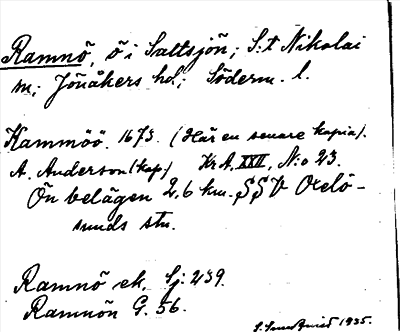 Ramnö, ö i Saltsjön; S:t Nikolai
sn; Jönåkers hd; Söderm. l.
Rammöö. 1673. (Här en senare kopia).
A. Anderson (kop.) Kr A, XXII, N:o 23.
Ön belägen 2,6 km. SSV Oxelö-
sunds stn.
Ramnö ek, Sj: 239.
Ramnön G. 56.
1935.